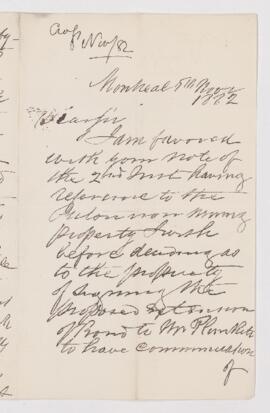 Nov/82
Montreal 8th Nov
1882
Dear Sir
I am favored
with your note of
the 2nd Inst having
reference to the
mining
property I wish
before deciding as
to the propriety
of signing the
proposed extension
of Bond to Mr Plunkett
to have communication
of